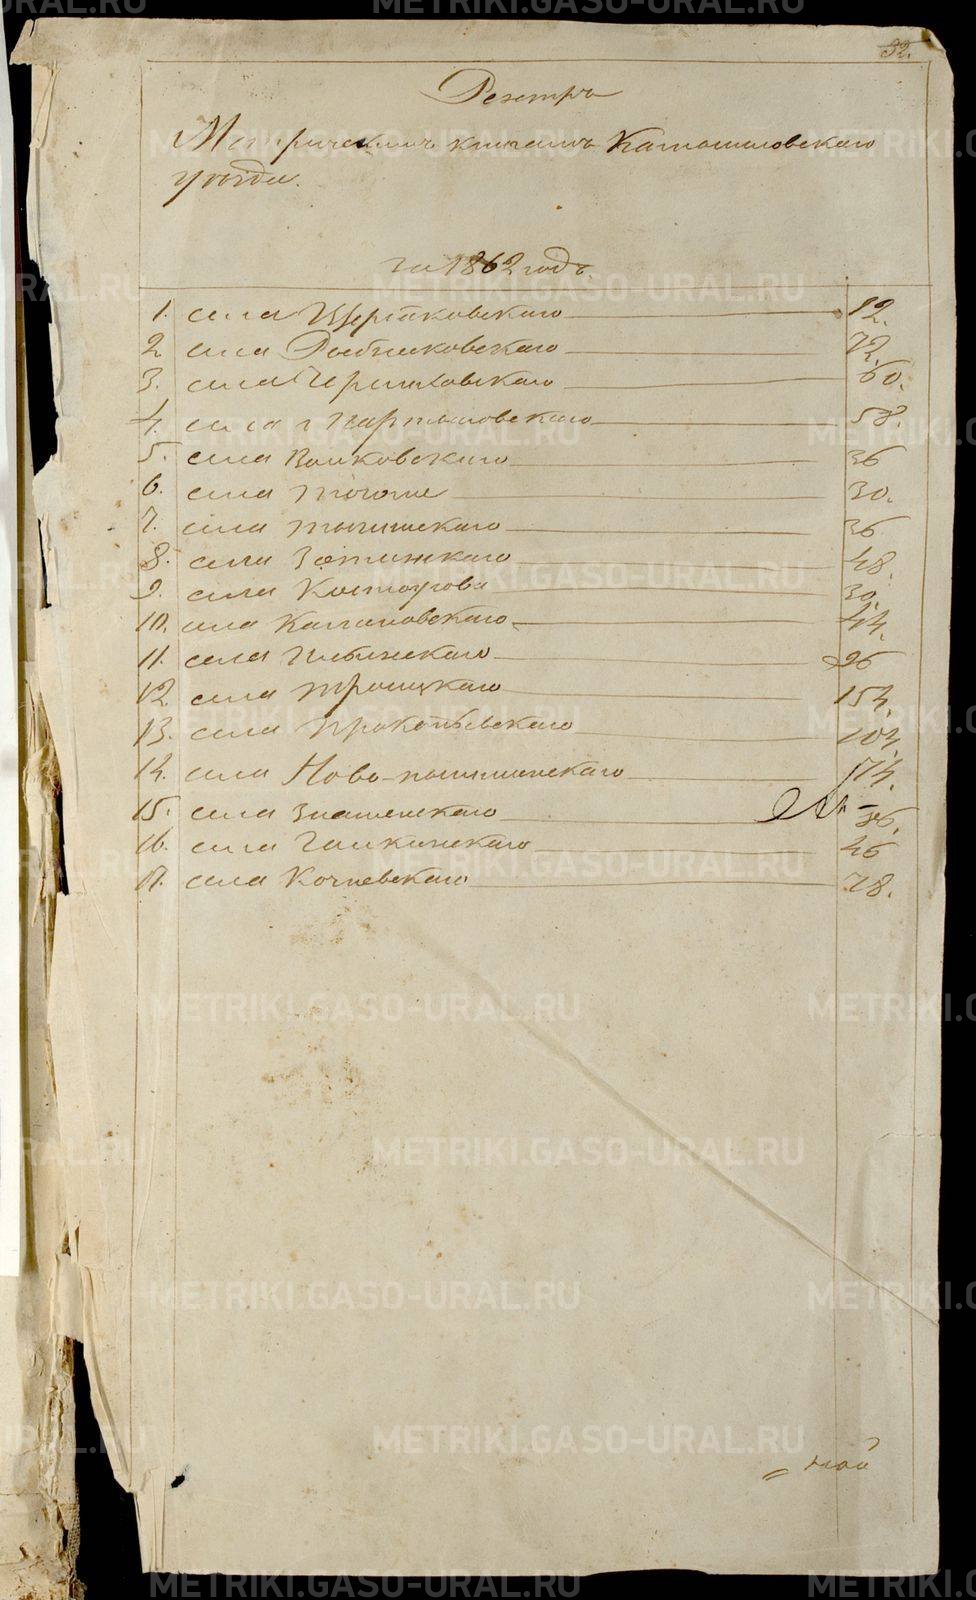 32.
Реестръ
Метрическимъ книгамъ Камышловскаго
уѣзда.
за 1862 годъ.
1. села Щербаковскаго 12.
2 села Рыбниковскаго 72.
3. села 60.
4. села Мартыновскаго 58.
5. села Волковскаго 36
6. села 30.
7. села 36
8. села Зотинскаго 48.
9. села Костоусова 30.
10. села Колчановскаго 44.
11. села Ильинскаго 96
12. села Троицкаго 154.
13. села Прокопьевскаго 104.
14. села Ново-пышминскаго 174.
15. села Знаменскаго 36.
16. села Галкинскаго 46
17. села Кочневскаго 78.
METRIKI.GASO-URAL.RU